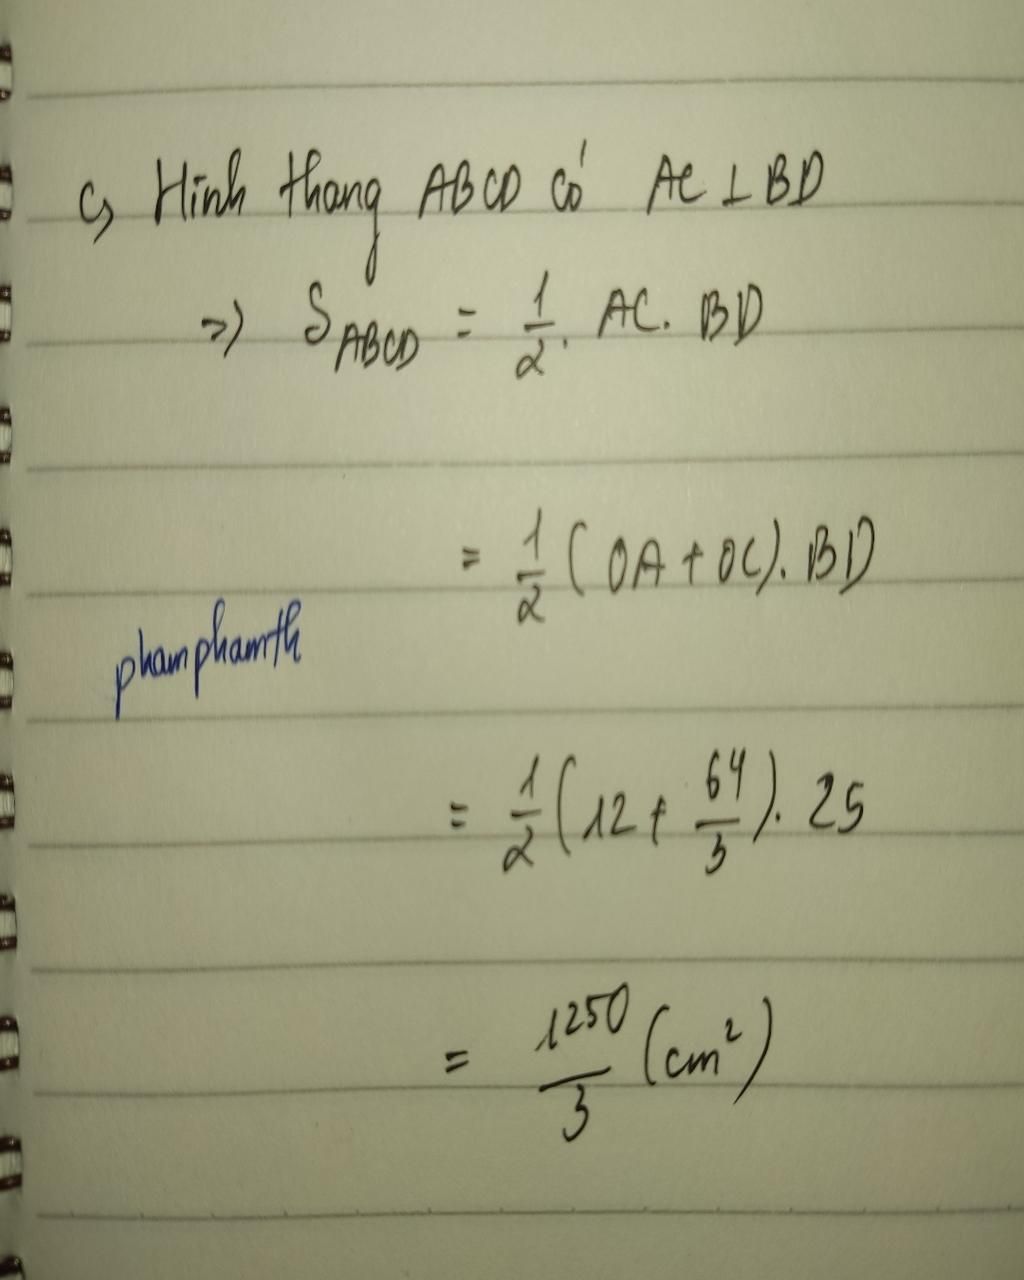 c, Hình thang ABCD có AC ⊥ BD
=> S_ABCD = 1/2 . AC. BD
= 1/2 (OA + OC). BD
phamphamth
= 1/2 (12 + 64/3). 25
= 1250/3 (cm²)